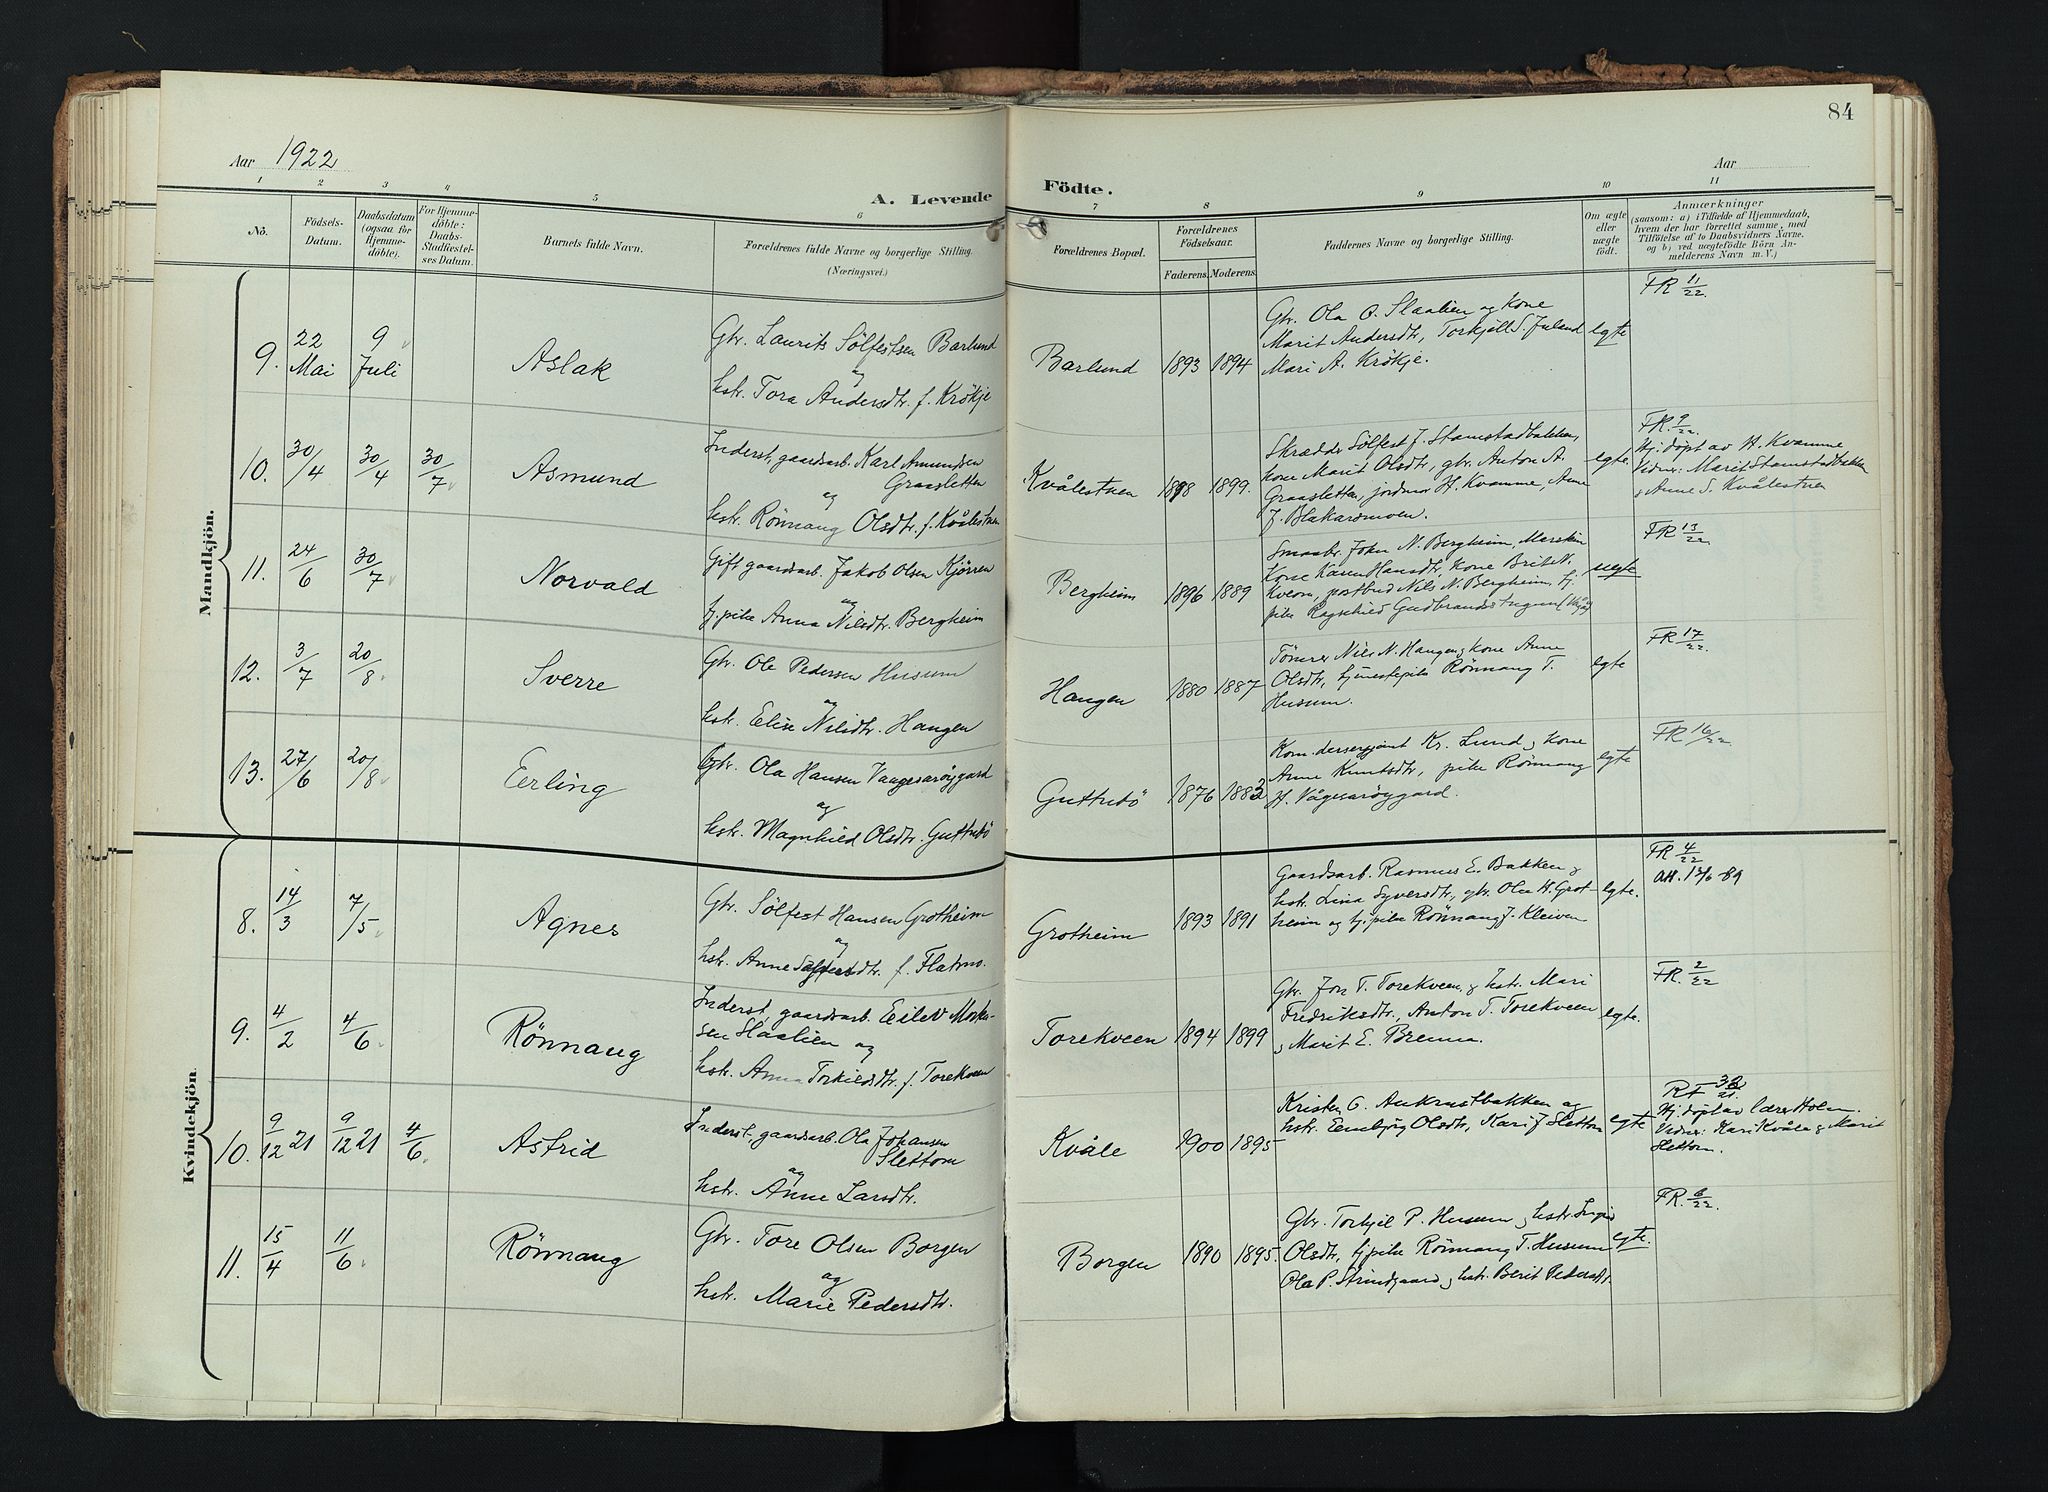 84
Aar 1922
Aar
A. Levende Födte.
1 2 3 4 5 6 7 8 9 10 11
Nö.
Födsels-Datum.
Daabsdatum (ogsaa for Hjemmedöbte).
For Hjemmedöbte: Daabs-Stadfæstelses Datum.
Barnets fulde Navn.
Forældrenes fulde Navne og borgerlige Stilling. (Næringsvei.)
Forældrenes Bopæl.
Forældrenes Födselsaar.
Faderens. Moderens.
Faddernes Navne og borgerlige Stilling.
Om ægte eller uægte födt.
Anmærkninger
(saasom: a) i Tilfælde af Hjemmedaab, hvem der har forrettet samme, med Tilföielse af to Daabsvidners Navne. og b) ved uægtefödte Börn Anmelderens Navn m. V.)
Mandkjön.
9. 22 Mai 9 Juli Aslak
Gbr. Laurits Sölfestsen Barlund
og
hstr. Tora Andersdtr. f. Krökje
Barlund 1893 1894
Gbr. Ola O. Slaalien og kone
Marit Andersdtr, Torkjell S. Juland
Mari A. Krökje.
egte
FR 11/22.
10. 30/4 30/4 30/7 Asmund
Inderst, gaardsarb. Karl Amundsen
Graasletten
og
hstr. Rönnaug Olsdtr. f. Kvålestuen
Kvålestuen 1898 1899.
Skrædder Sölfest J. Stamstadbakken,
kone Marit Olsdtr, gbr. Anton A.
Graasletten, jordmor H. Kvamme, Anne
J. Blakarømoen.
egte.
FR. 9/22.
Hj. döpt av H. Kvamme
Vidner: Marit Stamstadbakken
& Anne S. Kvålestuen
11. 24/6 30/7 Norvald
Gift gaardsarb. Jakob Olsen Kjörren
og
tj. pike Anna Nilsdtr. Bergheim
Bergheim 1896 1889
Smaabr. John N. Bergheim, Maskin
Kone Karen Hansdtr, kone Brit N.
Kveom, postbud Nils N. Bergheim, tj.
pike Ragnhild Gudbrandsstugun (Vågå)
uegte
FR 13/22
12. 3/7 20/8 Sverre
Gbr. Ole Pedersen Husum
og
hstr. Elise Nilsdtr. Haugen
Haugen 1880 1887
Tömrer Nils N. Haugen & kone Anne
Olsdtr, tjenestepike Rönnaug T.
Husum.
egte
FR 17/22.
13. 27/6 20/8 Eerling
Gbr. Ola Hansen Vaagesaröygard
og
hstr. Magnhild Olsdtr. Guttubö
Guttubö 1876 1883
Kom.dersergjant Kr. Lund & kone
Anne Knutsdtr, pike Rönnaug
H. Vågesaröygard.
egte
FR 16/22.
Kvindekjön.
8. 14/3 7/5 Agnes
Gbr. Sölfest Hansen Grotheim
og
hstr. Anne Syversdtr. f. Flatmo.
Grotheim 1893 1891
Gaardsarb. Rasmus E. Bakken &
hstr. Lina Syversdtr, gbr. Ola H. Grot-
heim og tj. pike Rönnaug J. Kleiven
egte.
FR 4/22
Att. 12/6-89
9. 4/2 4/6 Rönnaug
Inderst, gaardsarb. Eilev Morken-
sen Slaalien og
hstr. Anna Torkildsdtr. f. Torekveen
Torekveen 1894 1899
Gbr. Jon T. Torekveen & hstr. Mari
Fredriksdtr., Anton T. Torekveen
& Marit E. Brenna.
egte.
FR. 2/22
10. 9/12 21 9/12 21 4/6 Astrid
Inderst, gaardsarb. Ola Johansen
Slettom
og
hstr. Anne Larsdtr.
Kvåle 1900 1895
Kristen O. Aukrustbakken og
hstr. Eembjörg Olsdtr, Kari J Slettom
egte
RF 32/21.
Hj. döpt av lærer Holm.
Vidner: Kari Kvåle & Marit
Slettom.
11. 15/4 11/6 Rönnaug
Gbr. Tore Olsen Borgen
og
hstr. Marie Pedersdtr.
Borgen 1890 1895.
Gbr. Torkjel P. Husum & hstr. Ingrid
Olsdtr, tj. pike Rönnaug T. Husum
Ola P. Strindgaard & hstr. Berit Pedersdtr.
egte.
FR. 6/22.